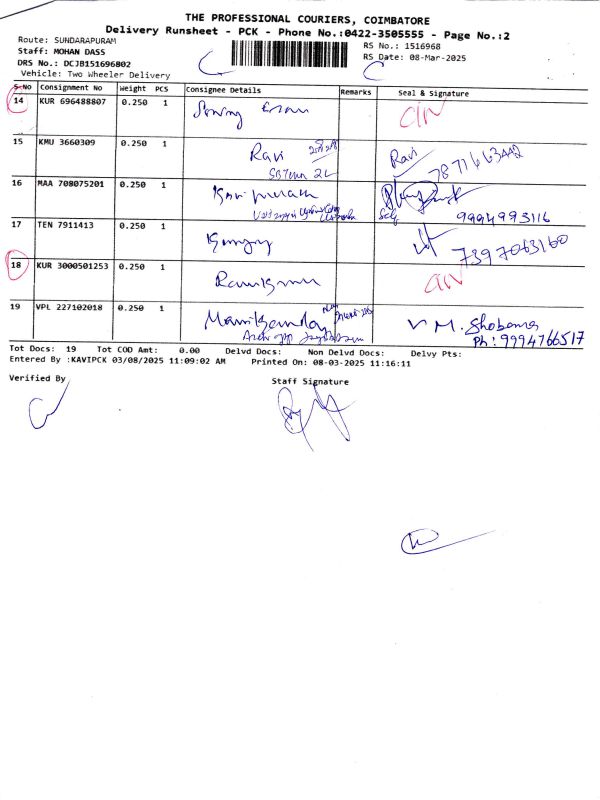 THE PROFESSIONAL COURIERS, COIMBATORE
Delivery Runsheet - PCK - Phone No.:0422-3505555 - Page No.:2
Route: SUNDARAPURAM
RS No.: 1516968
Staff: MOHAN DASS
RS Date: 08-Mar-2025
DRS No.: DCJB151696802
Vehicle: Two Wheeler Delivery
S.No Consignment No Weight PCS Consignee Details Remarks Seal & Signature
14 KUR 696488807 0.250 1
15 KMU 3660309 0.250 1 Ravi Ravi 7871663442
16 MAA 708075201 0.250 1 Self 9994993116
17 TEN 7911413 0.250 1 7397063160
18 KUR 3000501253 0.250 1
19 VPL 227102018 0.250 1 Manikandan M. Shobana
Ph: 9994766517
Tot Docs: 19 Tot COD Amt: 0.00 Delvd Docs: Non Delvd Docs: Delvy Pts:
Entered By :KAVIPCK 03/08/2025 11:09:02 AM Printed On: 08-03-2025 11:16:11
Verified By Staff Signature